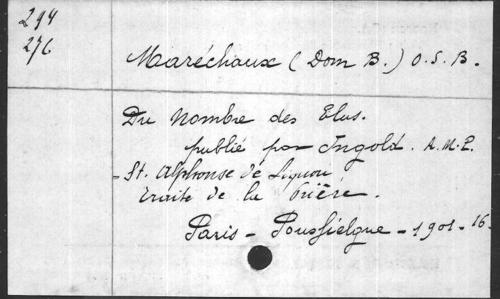 294
276
Maréchaux (Dom B.) O.S.B.
Du Nombre des Elus.
publié par Ingold. A.M.P.
- St. Alphonse de Liguori
traité de la Prière.
Paris - Poussielgue - 1901 - 16.